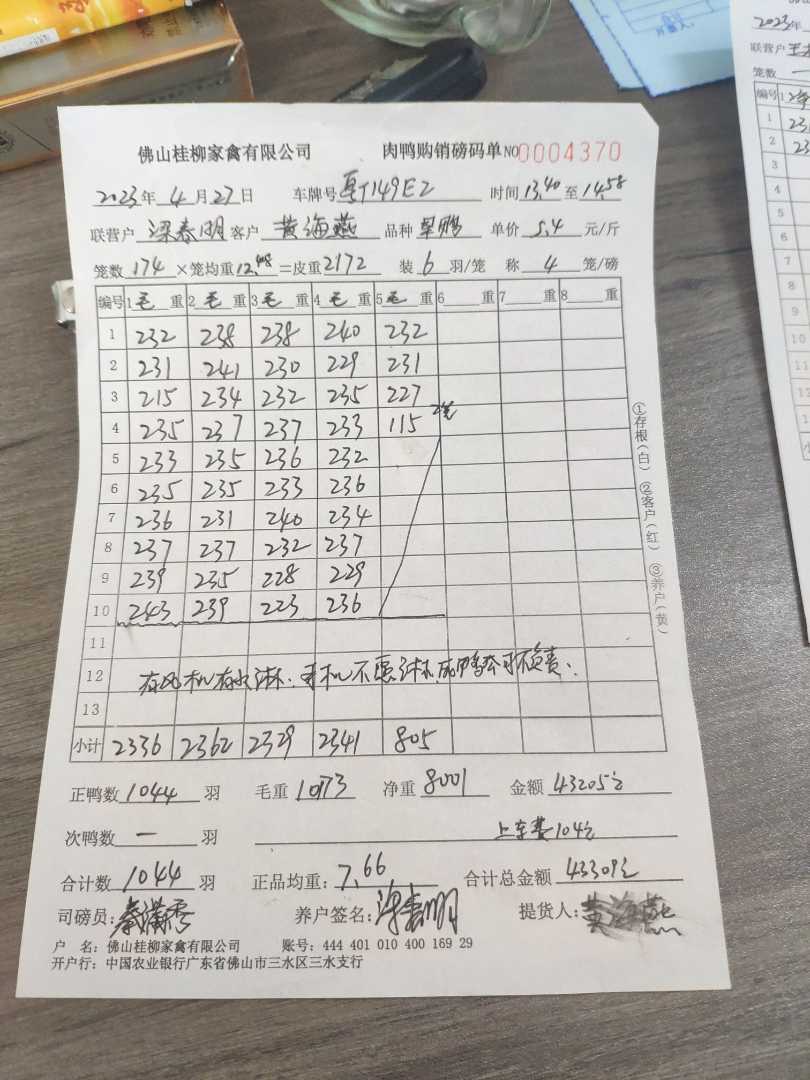 佛山桂柳家禽有限公司 肉鸭购销磅码单 NO 0004370
2023年 4月27日 车牌号 149E2 时间 13.40 至 14.58
联营户 梁春明 客户 黄海燕 品种 单价 5.4 元/斤
笼数 174 ×笼均重 12.48 =皮重 2172 装 6 羽/笼 称 4 笼/磅
编号 1 毛 重 2 毛 重 3 毛 重 4 毛 重 5 毛 重 6 重 7 重 8 重
1 232 238 238 240 232
2 231 241 230 229 231
3 215 234 232 235 227
4 235 237 237 233 115 2笼
5 233 235 236 232
6 235 235 233 236
7 236 231 240 234
8 237 237 232 237
9 239 235 228 229
10 243 239 223 236
11
12 有风机有水淋.司机不愿淋,死鸭公司不负责.
13
小计 2336 2362 2329 2341 805
正鸭数 1044 羽 毛重 10173 净重 8001 金额 43205元
次鸭数 一 羽 上车费104元
合计数 1044 羽 正品均重: 7.66 合计总金额 43309元
司磅员: 养户签名: 梁春明 提货人: 黄海燕
户 名: 佛山桂柳家禽有限公司 账号: 444 401 010 400 169 29
开户行: 中国农业银行广东省佛山市三水区三水支行
①存根(白) ②客户(红) ③养户(黄)
2023年
联营户
笼数 一
编号 1
1 23
2 23
3
4
5
6
7
8
9
10
11
12